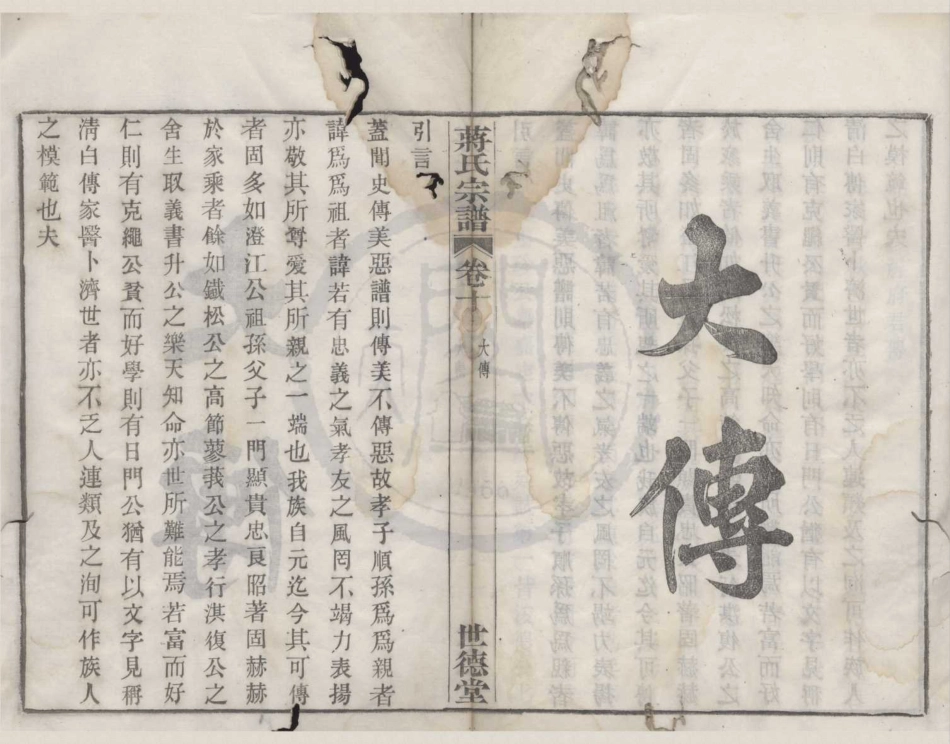 大傳
蔣氏宗譜
卷十
大傳
世德堂
引言
蓋聞史傳美惡譜則傳美不傳惡故孝子順孫爲爲親者
諱爲爲祖者諱若有忠義之氣孝友之風罔不竭力表揚
亦敬其所尊愛其所親之一端也我族自元迄今其可傳
者固多如澄江公祖孫父子一門顯貴忠良昭著固赫赫
於家乘者餘如鐵松公之高節蓼莪公之孝行淇復公之
舍生取義書升公之樂天知命亦世所難能焉若富而好
仁則有克繩公貧而好學則有日門公猶有以文字見稱
淸白傳家醫卜濟世者亦不乏人連類及之洵可作族人
之模範也夫